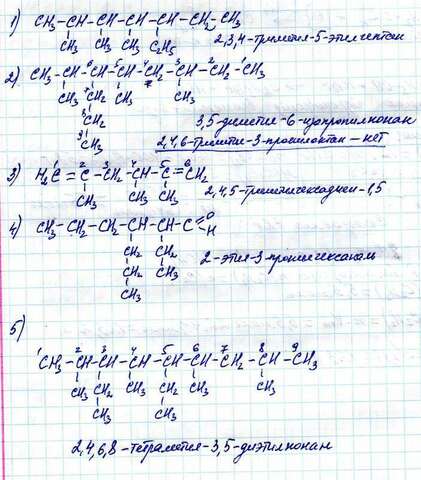 1) CH₃-CH-CH-CH-CH-CH₂-CH₃
CH₃ CH₃ CH₃ C₂H₅
2,3,4-триметил-5-этилгептан
2) CH₃-CH-CH-CH-CH₂-CH-CH₂-CH₃
6 5 4 3 2 1
CH₃ CH₂ CH₃ CH₃
7
CH₂
8
CH₃
9
3,5-диметил-6-изопропилнонан
2,4,6-триметил-3-пропилоктан - нет
3) H₂C=C-CH₂-CH-C=CH₂
1 2 3 4 5 6
CH₃ CH₃ CH₃
2,4,5-триметилгексадиен-1,5
4) CH₃-CH₂-CH₂-CH-CH-C=O
H
CH₂ CH₂
CH₂ CH₃
CH₃
2-этил-3-пропилгексаналь
5)
1 2 3 4 5 6 7 8 9
CH₃-CH-CH-CH-CH-CH-CH₂-CH-CH₃
CH₃ CH₂ CH₃ CH₂ CH₃ CH₃
CH₃ CH₃
2,4,6,8-тетраметил-3,5-диэтилнонан